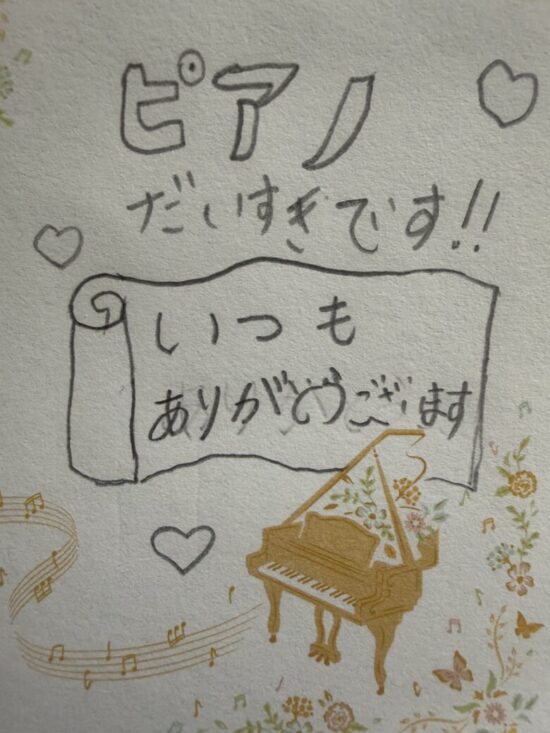 ピアノ
だいすきです!!
いつも
ありがとうございます